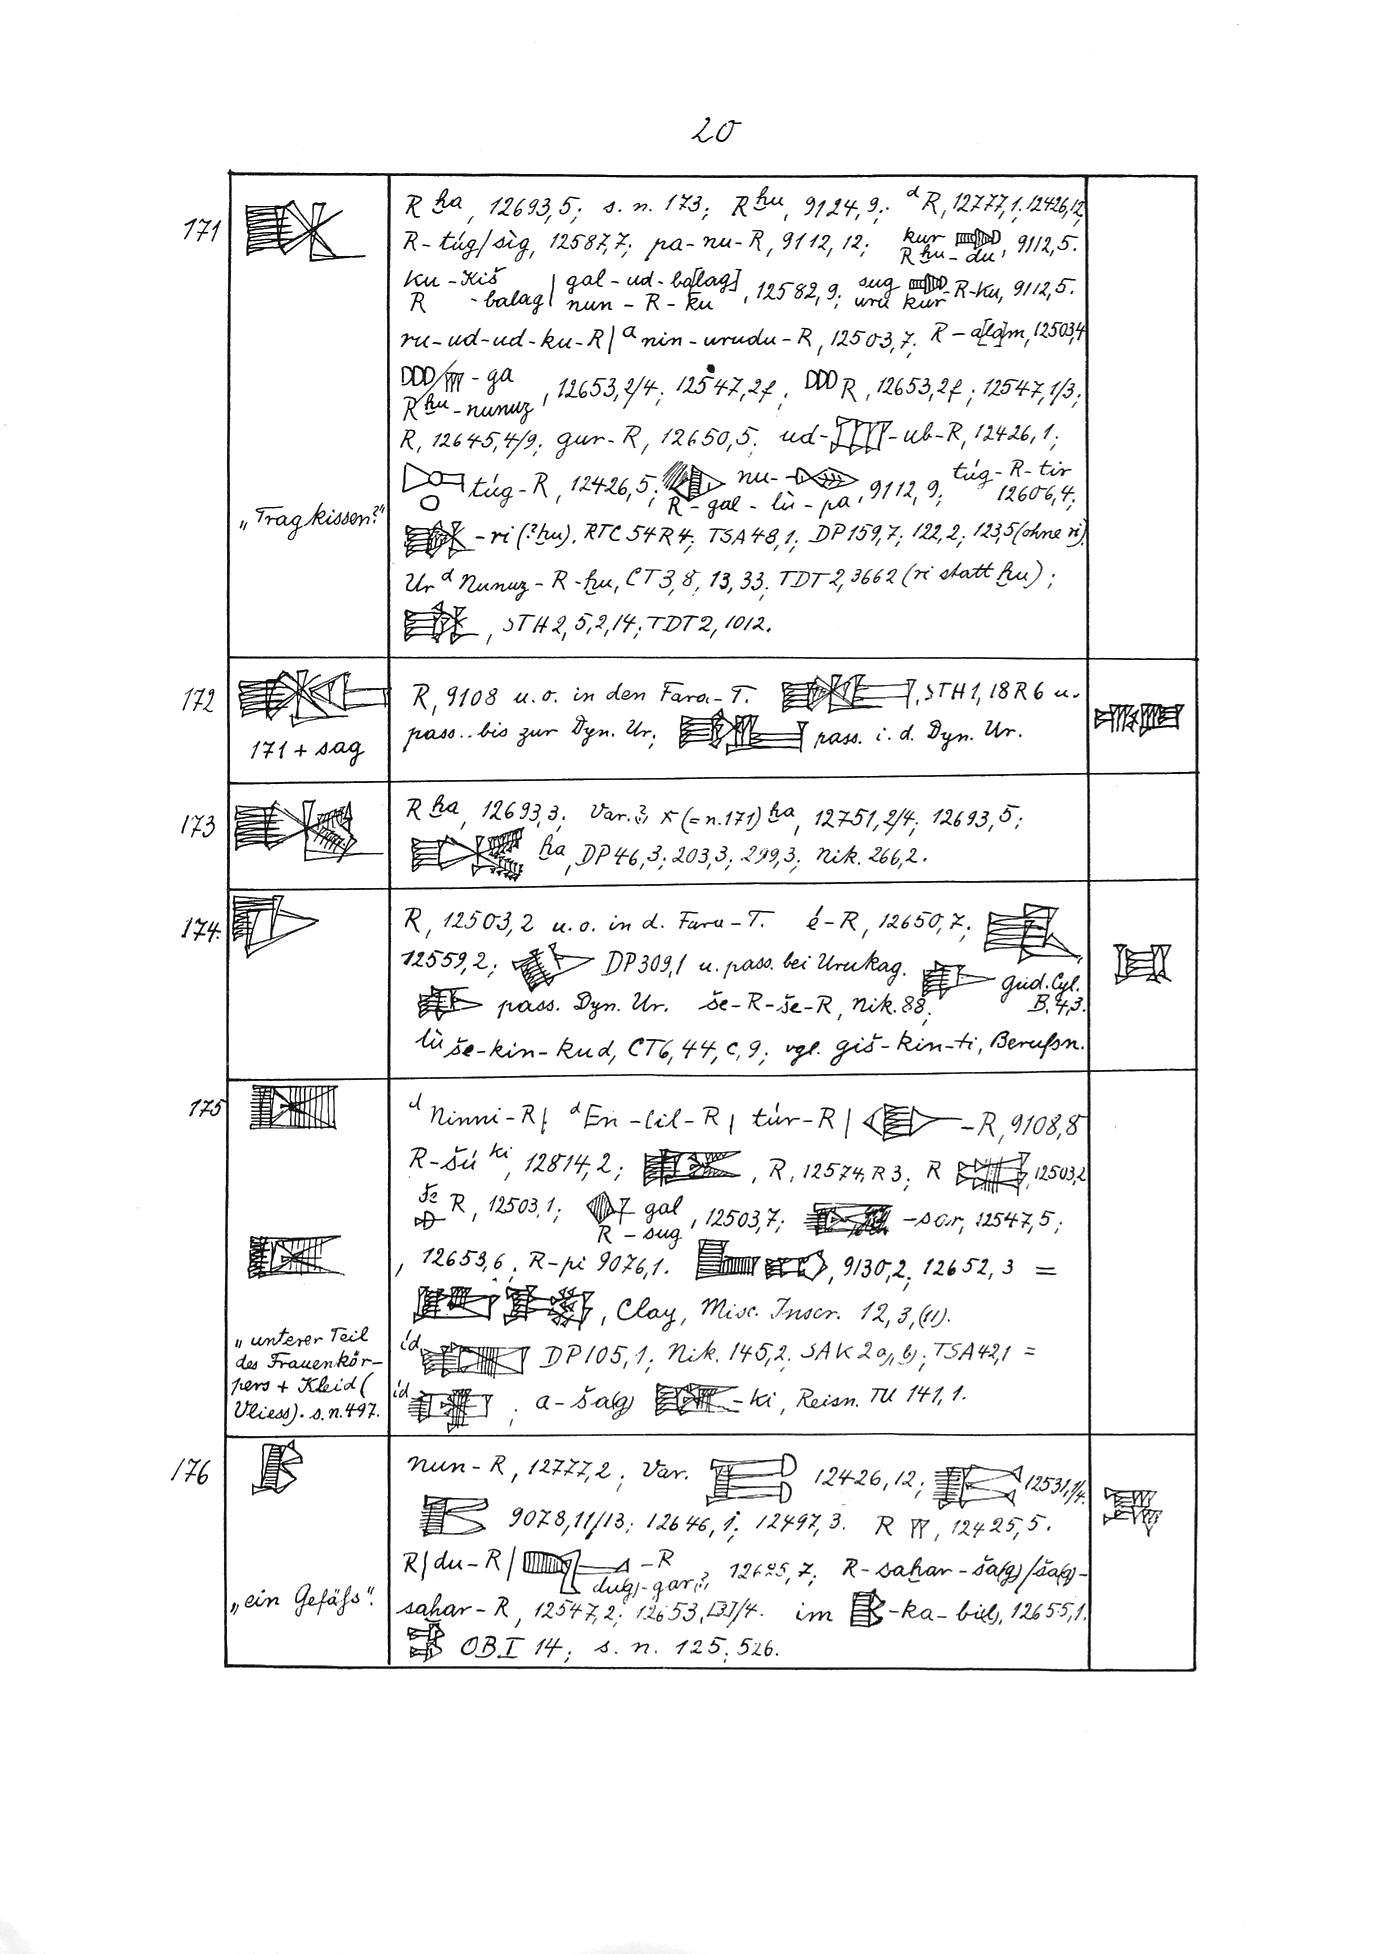 20
171
R ḫa, 12693,5; s. n. 173; R ḫu, 9124,9; d R, 12777,1; 12426,12;
R-túg/sìg, 12587,7; pa-nu-R, 9112,12; kur R ḫu-du, 9112,5.
ku-Kiš R -balag | gal-ud-ba[lag] nun-R-ku, 12582,9; sug uru kur -R-ku, 9112,5.
ru-ud-ud-ku-R | a nin-urudu-R, 12503,7; R-a[la]m, 12503,4
DDD/ -ga R ḫu-nunuz, 12653,2/4; 12547,2f; DDD R, 12653,2f; 12547,1/3;
R, 12645,4/9; gur-R, 12650,5; ud- -ub-R, 12426,1;
túg-R, 12426,5; nu- R-gal-lù-pa, 9112,9; túg-R-tir 12606,4;
„Tragkissen?“
-ri (?ḫu). RTC 54 R 4; TSA 48,1; DP 159,7; 122,2; 123,5 (ohne ri)
Ur d Nunuz-R-ḫu, CT 3,8, 13,33; TDT 2, 3662 (ri statt ḫu);
, STH 2, 5,2,14; TDT 2, 1012.
172
R, 9108 u. o. in den Fara-T. , STH 1, 18 R 6 u.
171 + sag
pass.. bis zur Dyn. Ur; pass. i. d. Dyn. Ur.
173
R ḫa, 12693,3; Var.?; (= n. 171) ḫa, 12751,2/4; 12693,5;
ḫa, DP 46,3; 203,3; 299,3; Nik. 266,2.
174.
R, 12503,2 u. o. in d. Fara-T. é-R, 12650,7;
12559,2; DP 309,1 u. pass. bei Urukag. Gud. Cyl. B. 4,3.
pass. Dyn. Ur. še-R-še-R, Nik. 88;
lù še-kin-kud, CT 6, 44, c, 9; vgl. giš-kin-ti, Berufsn.
175
d Ninni-R | d En-lil-R | túr-R | -R, 9108,8
R-šú ki, 12814,2; , R, 12574, R 3; R 12503,2
R, 12503,1; gal R-sug, 12503,7; -sar, 12547,5;
, 12653,6; R-pi 9076,1. , 9130,2; 12652,3 =
, Clay, Misc. Inscr. 12, 3, (11).
„unterer Teil des Frauenkör-
pers + Kleid (
Vliess). s. n. 497.
íd DP 105,1; Nik. 145,2; SAK 2 a, b; TSA 42,1 =
íd ; a-ša(g) -ki, Reisn. TU 141,1.
176
nun-R, 12777,2; Var. 12426,12; 12531,1/4.
9078,11/13; 12646,1; 12497,3. R , 12425,5.
R | du-R | -R du(g)-gar?, 12625,7; R-saḫar-ša(g)/ša(g)-
„ein Gefäſs“.
saḫar-R, 12547,2; 12653,[3]/4. im -ka-bi(d), 12655,1.
OBI 14; s. n. 125; 526.